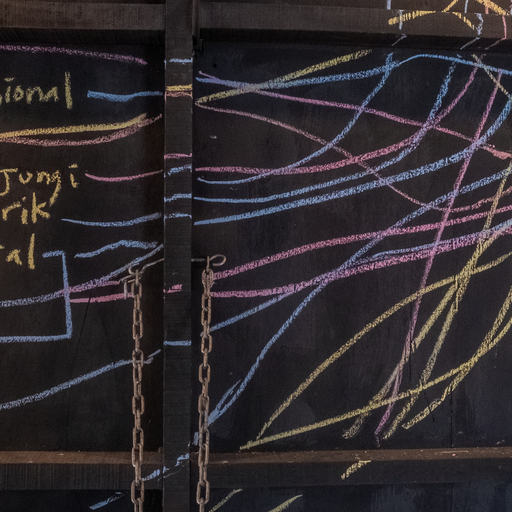 sional
Jungi
rik
ral